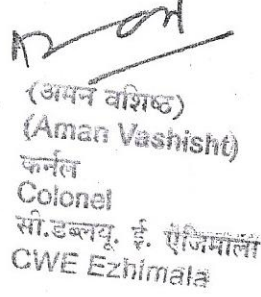 (अमन वशिष्ठ)
(Aman Vashisht)
कर्नल
Colonel
सी.डब्लयू. ई. ऐजिमाला
CWE Ezhimala